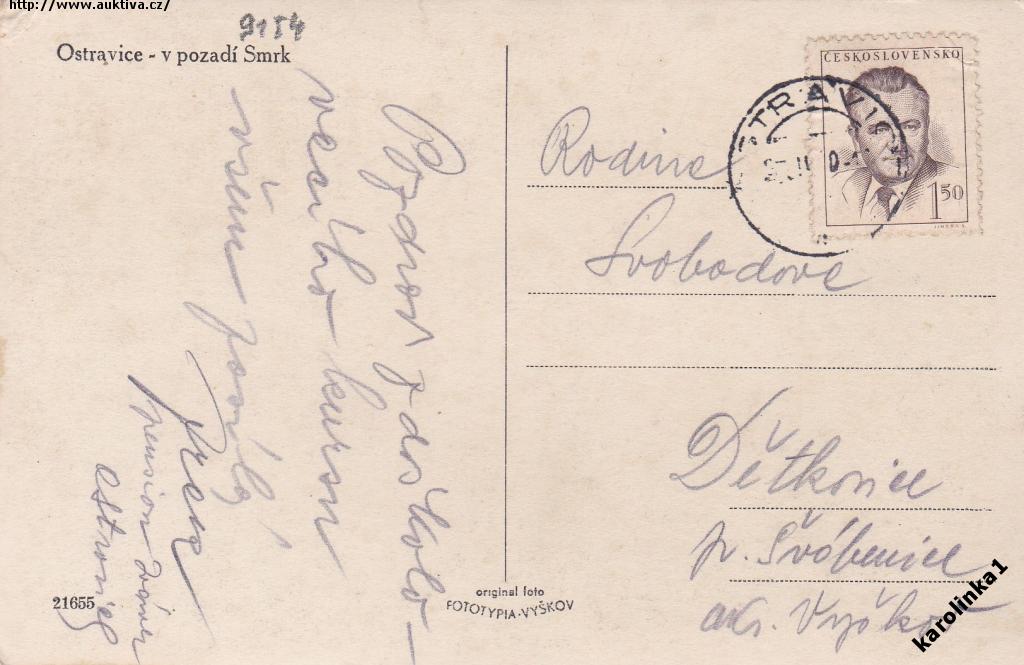 http://www.auktiva.cz/
9154
Ostravice - v pozadí Smrk
Pozdrav z doškolo-
vacího kursu
všem posílá
pension
Ostravice
21655
original foto
FOTOTYPIA-VYŠKOV
ČESKOSLOVENSKO
1 50
OSTRAVICE
Rodina
Svobodova
Dětkovice
p. Švábenice
okr. Vyškov
karolinka1